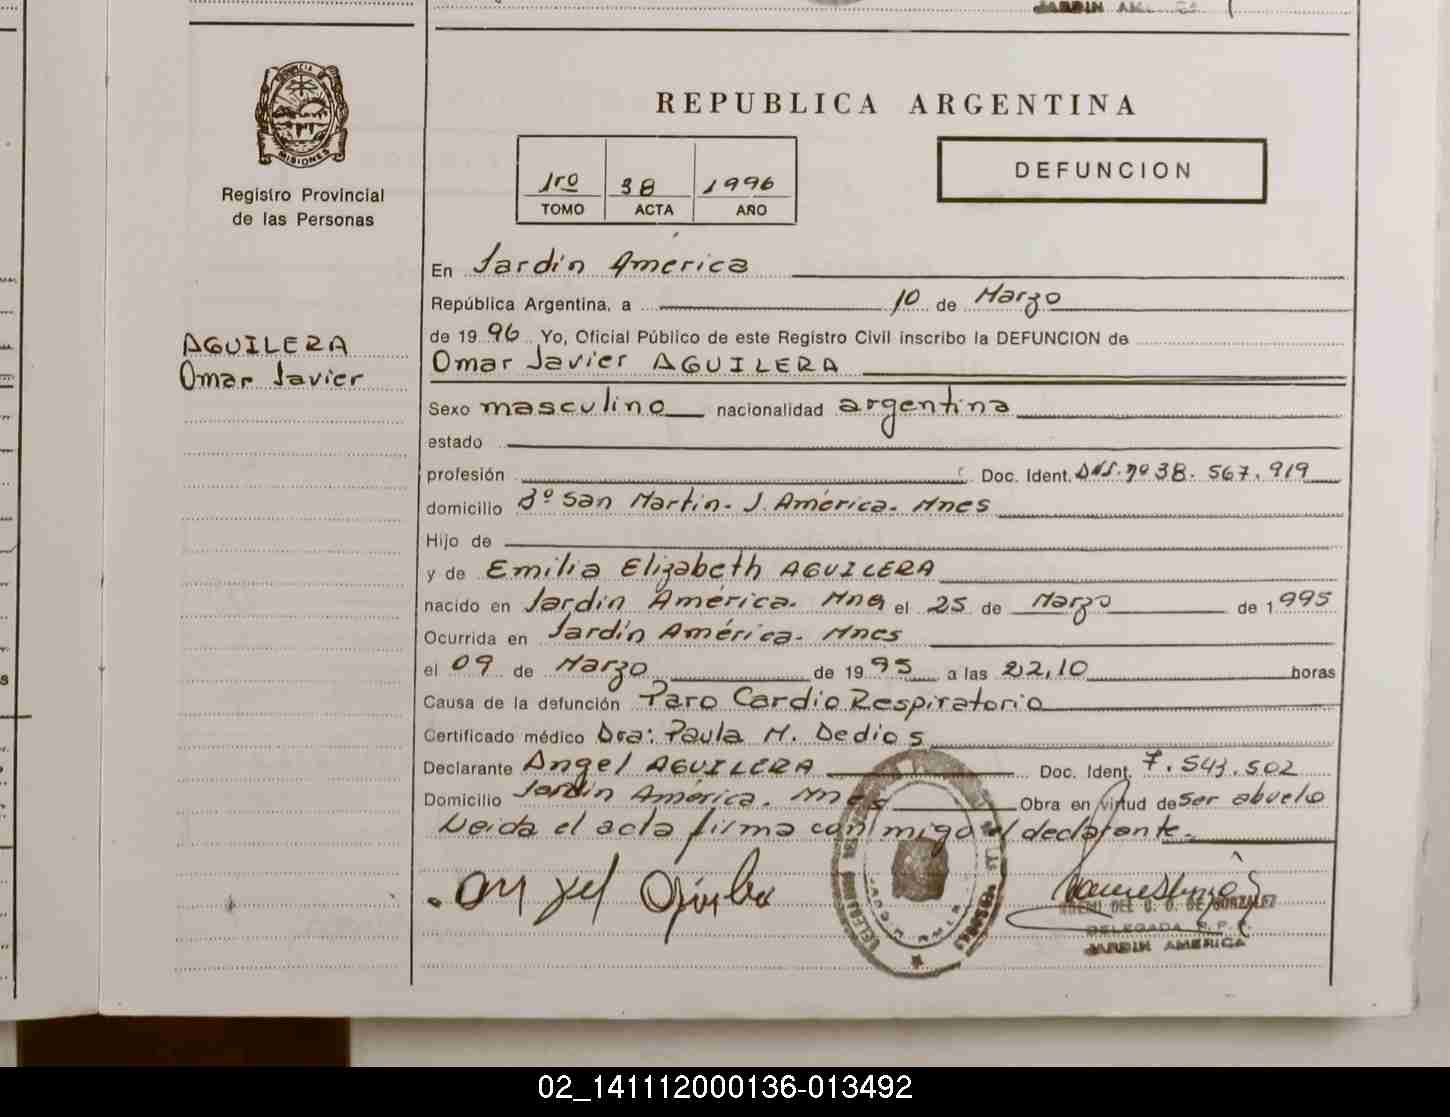 JARDIN AM
PROVINCIA DE
MISIONES
Registro Provincial
de las Personas
REPUBLICA ARGENTINA
1ro 38 1996
TOMO ACTA AÑO
DEFUNCION
AGUILERA
Omar Javier
En Jardín América
República Argentina, a 10 de Marzo
de 19 96 Yo, Oficial Público de este Registro Civil inscribo la DEFUNCION de
Omar Javier AGUILERA
Sexo masculino nacionalidad argentina
estado
profesión Doc. Ident. DNI. nº 38. 567. 919
domicilio Bº San Martín. J. América. Mnes
Hijo de
y de Emilia Elizabeth AGUILERA
nacido en Jardín América. Mnes el 25 de Marzo de 1995
Ocurrida en Jardín América. Mnes
el 09 de Marzo de 19 95 a las 22,10 horas
Causa de la defunción Paro Cardio Respiratorio
Certificado médico Dra: Paula M. Dedios
Declarante Angel AGUILERA Doc. Ident. 7. 543. 502
Domicilio Jardín América. Mnes Obra en virtud de Ser abuelo
Leída el acta firma conmigo el declarante.
DE GONZALEZ
DELEGADA R.P.
JARDIN AMERICA
02_141112000136-013492